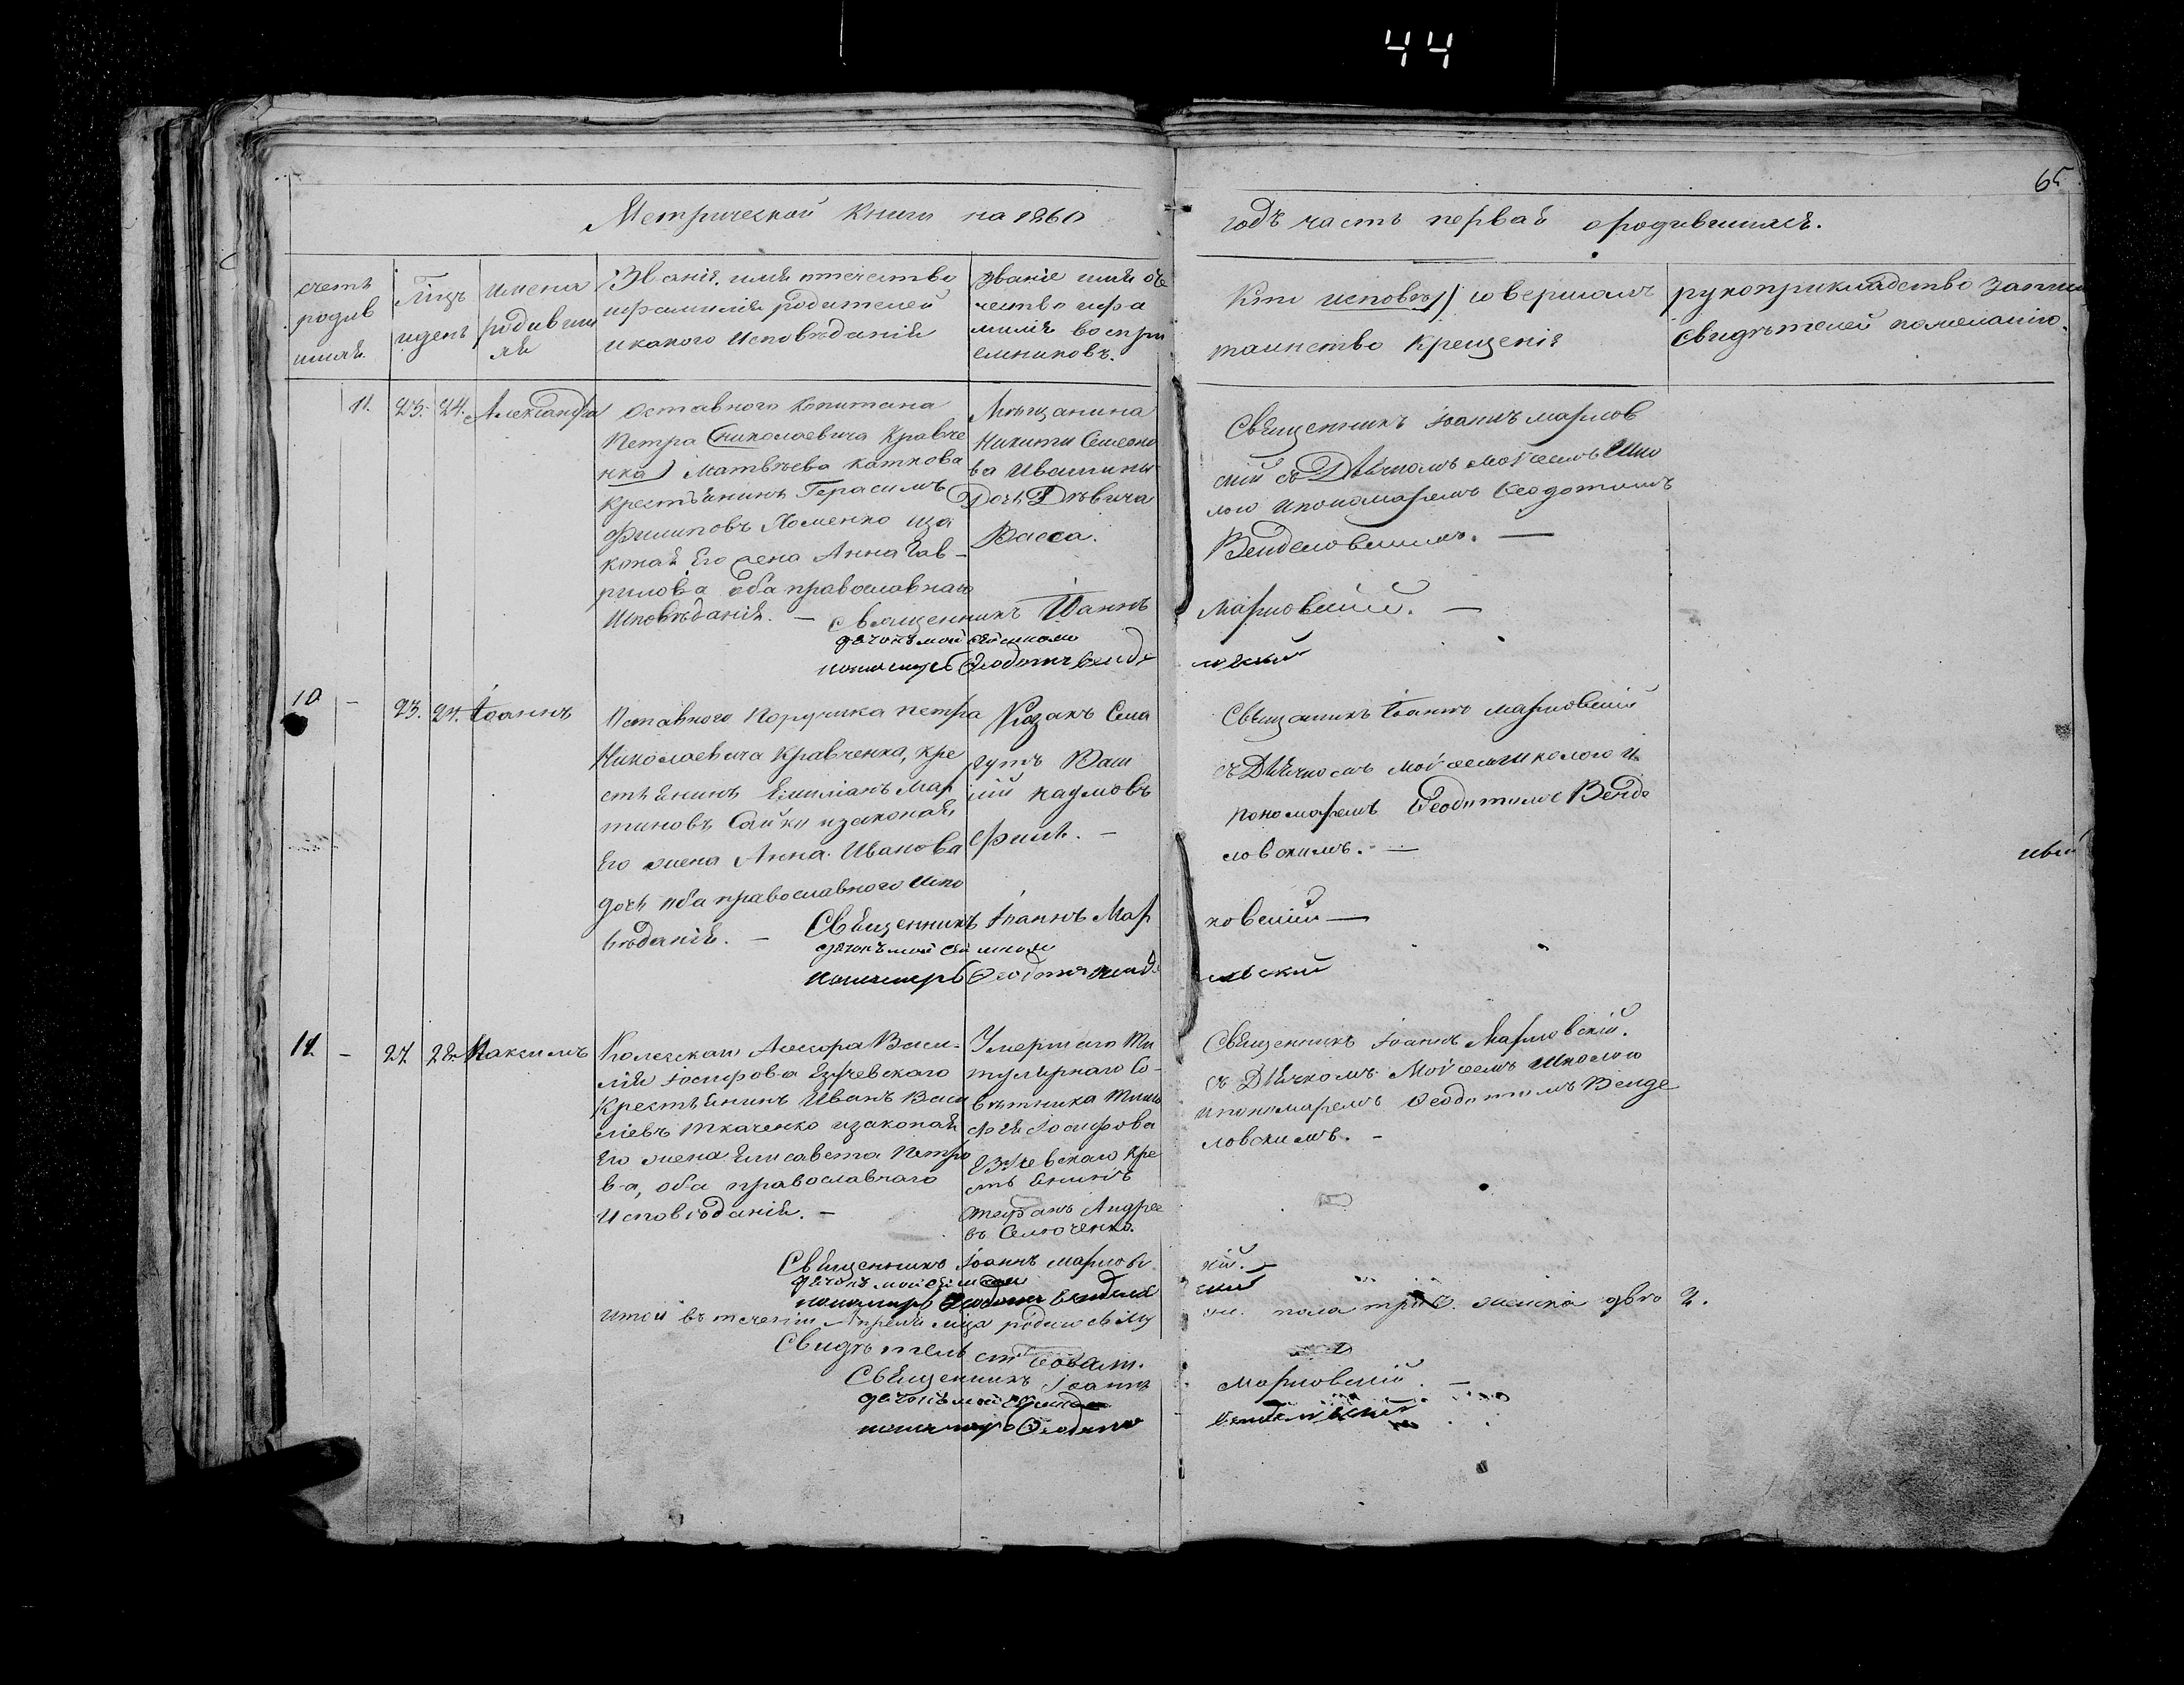 44
65
Метрической Книги на 1860
годъ часть первая о родившихся.
счетъ родив шихся.
Міцъ и день
имена родивших ся
Званіе, имя отечество
и фамилія родителей
и какого Исповѣданія
Званіе имя оте
чество и фа
милія воспрі
емниковъ.
Кто исповѣд совершалъ
таинство Крещенія
рукоприкладство
свидѣтелей по желанію.
11. 23. 24. Александра
Оставного Капитана
Петра (Николаевича Кравче
нка) Матвѣева
крестьянинъ Герасимъ
Филиповъ Хоменко и за
коная Его жена Анна Гав-
рилова оба православнаго
Исповѣданія. —
Мѣщанина
Никиты Семено
ва
Дочь Дѣвица
Васса.
Священникъ Іоаннъ Марков
скій съ Дьячкомъ Мойсеемъ Шко
лою и пономаремъ Ѳеодотомъ
Венделовскимъ. —
Священникъ Іоаннъ Марковскій. —
дьячокъ Мойсей Школа
пономарь Ѳеодотъ Венде
10 — 23. 24. Іоаннъ
Оставного Поручика Петра
Николаевича Кравченка, кре
стьянинъ Емиліанъ Мар
тиновъ Сайко и законая
Его жена Анна Иванова
дочь оба православного Испо
вѣданія. —
Козакъ
Васи
лій Наумовъ
Священникъ Іоаннъ Марковскій
съ Дьячкомъ Мойсеемъ Школою и
пономаремъ Ѳеодотомъ Венде
ловскимъ. —
Священникъ Іоаннъ Мар ковскій —
дьячокъ Мойсей Школа
пономарь Ѳеодотъ Венде
— 27 28 Максимъ
Колежскаго Асесора Васи-
лія Іосифова
Крестьянинъ Иванъ Васи
ліевъ Ткаченко и законая
Его жена Елисавета Петро
ва, оба православнаго
Исповѣданія. —
Умершаго Ти
тулярнаго Со-
вѣтника Тимо
фея Іосифова
кре
стьянинъ
Стефанъ Андрее
въ
Священникъ Іоаннъ Марковскій.
съ Дьячкомъ Мойсеемъ Школою
и пономаремъ Ѳеодотомъ Венде
ловскимъ. —
Священникъ Іоаннъ Марковскій. —
дьячокъ Мойсей Школа
пономарь Ѳеодотъ
Итого въ теченіи Апреля мца родилось
пола три женска двѣ 2.
Свидѣтельствовалъ.
Священникъ Іоаннъ Марковскій. —
дьячокъ Мойсей Школа
пономарь Ѳеодотъ